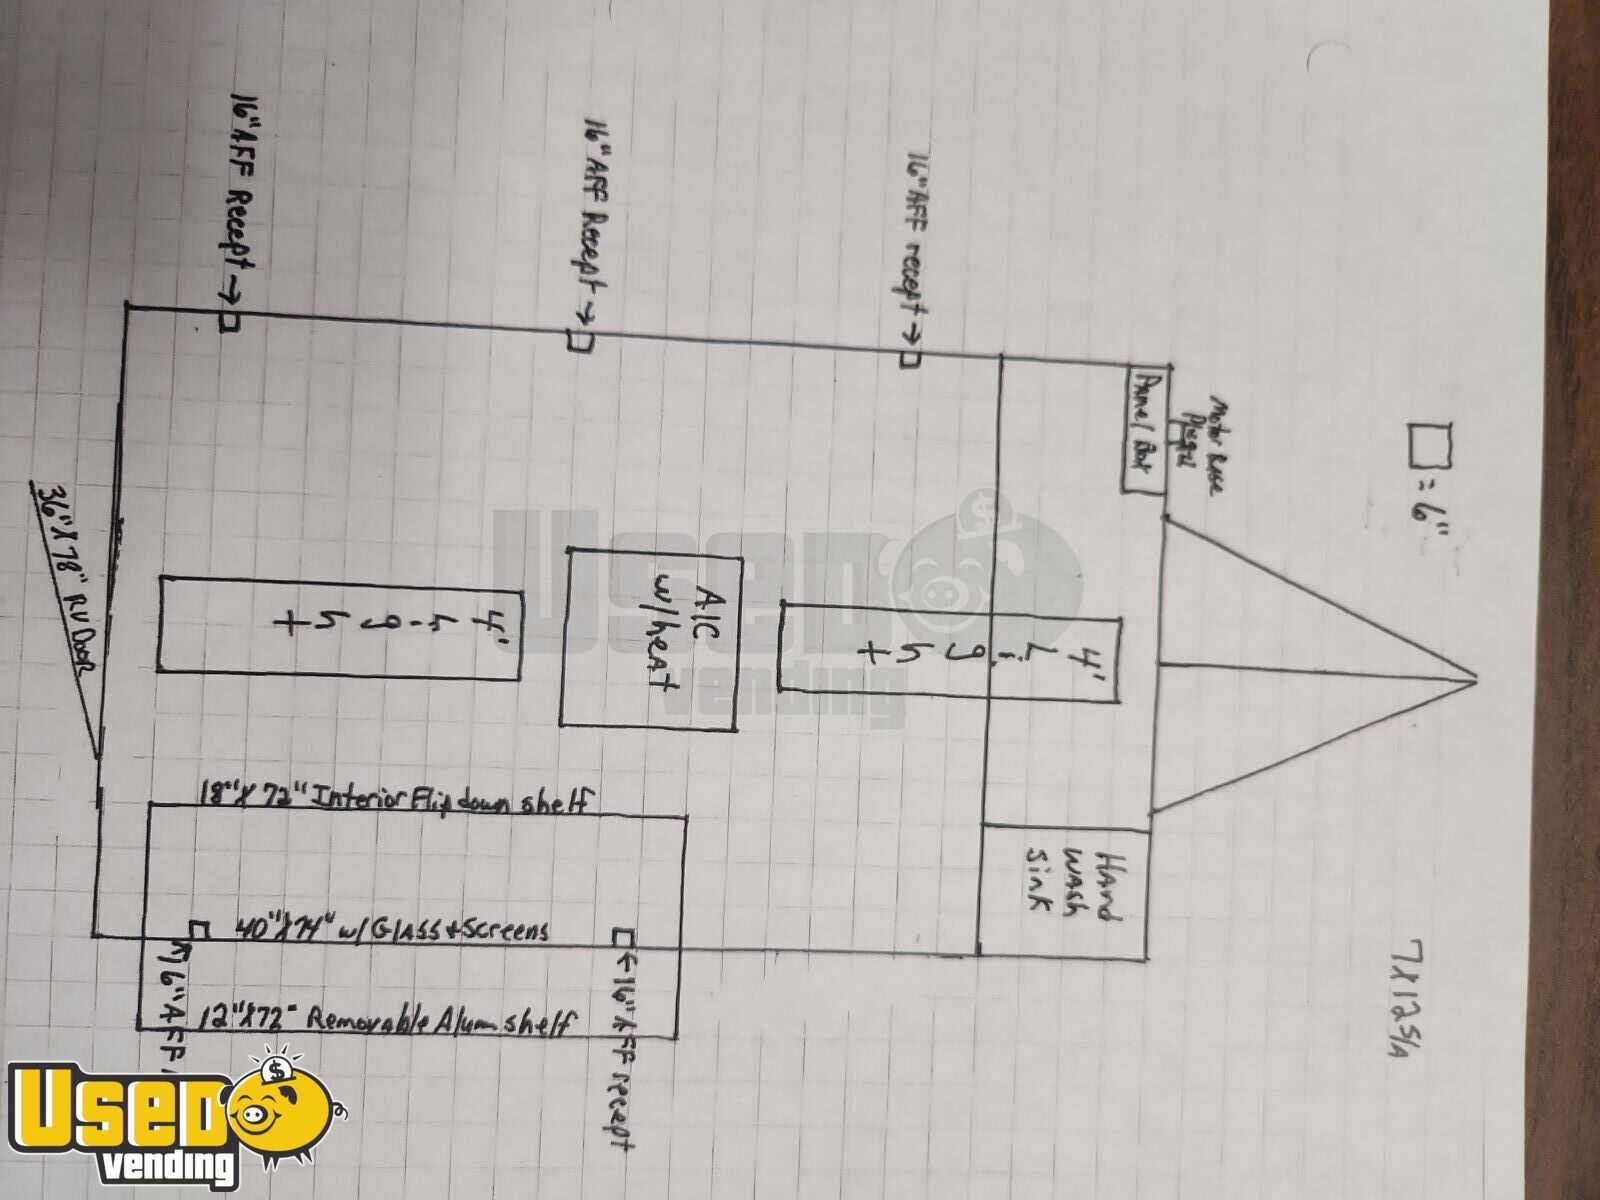 16" AFF Recept →
16" AFF Recept →
16" AFF recept →
Motor Base
Panel Box
= 6"
7X12 S/A
36" X 78" RV Door
4'
Light
A/C
w/heat
4'
Light
Hand
wash
sink
18" X 72" Interior Flip down shelf
40" X 74" w/ Glass + Screens
12" X 72" Removable Alum shelf
16" AFF
← 16" AFF recept
USED
vending
USED
vending